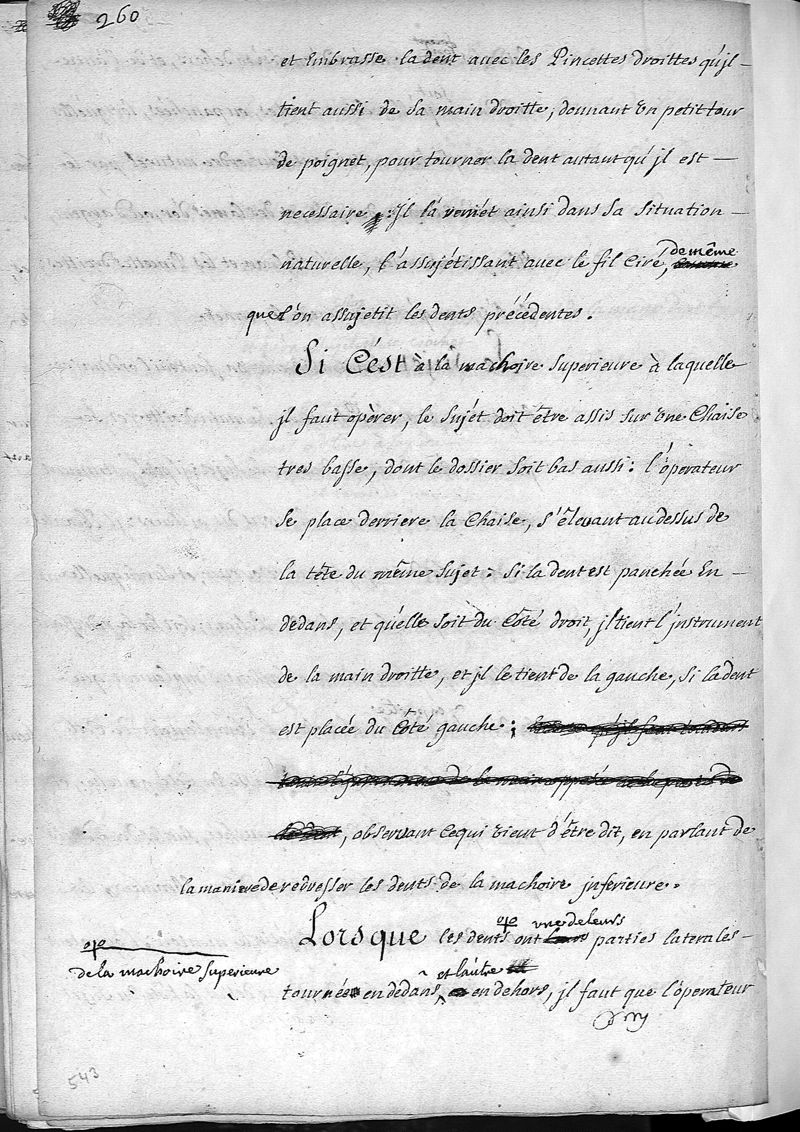 260
et Embrasse la dent avec les Pincettes droittes qu'jl
tient aussi de sa main droitte, donnant un petit tour
de poignet, pour tourner la dent autant qu'jl est
necessaire : jl la remet ainsi dans sa situation
naturelle, l'assujétissant avec le fil Ciré, de même
que l'on assujetit les dents précédentes.
Si C'est à la machoire superieure à laquelle
jl faut opèrer, le Sujét doit être assis sur une Chaise
tres basse, dont le dossier soit bas aussi : l'óperateur
se place derriere la Chaise, s'élevant au dessus de
la tête du même sujet : Si la dent est panchée En
dedans, et qu'elle soit du Côté droit, jl tient l'jnstrument
de la main droitte, et jl le tient de la gauche, si la dent
est placée du Côté gauche ;
, observant Ce qui vient d'être dit, en parlant de
la maniere de redresser les dents de la machoire jnferieure.
Lorsque les dents ont une de leurs parties laterales
de la machoire superieure
tourné en dedans, et l'autre en dehors, jl faut que l'óperateur
543